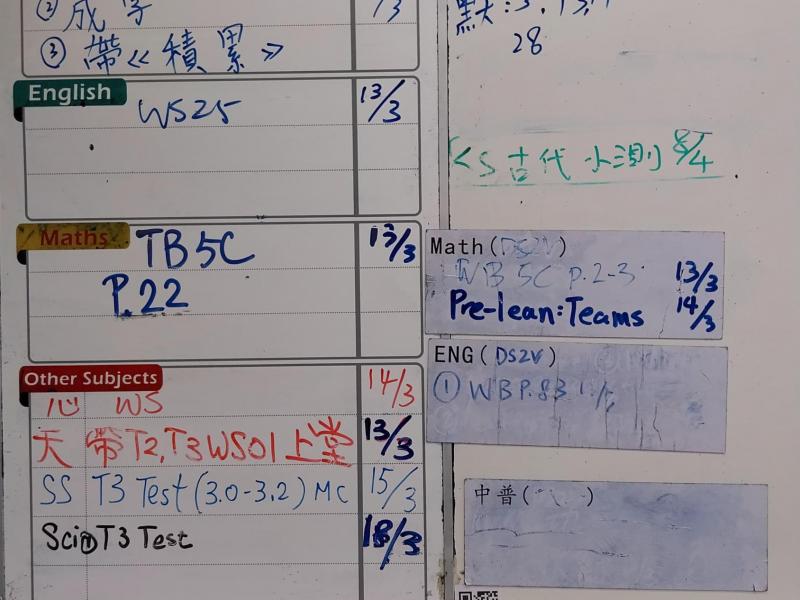 ② 成字
/3
③ 帶《積累》
English
WS25 13/3
Maths
TB 5C 13/3
P.22
Other Subjects
心 WS 14/3
天 帶 T2, T3 WS01 上堂 13/3
SS T3 Test (3.0-3.2) MC 15/3
Scin T3 Test 18/3
默:
28
古代 小測 8/4
Math (DS2V)
WB 5C P.2-3 13/3
Pre-lean: Teams 14/3
ENG (DS2V)
① WB P.83
中普( )